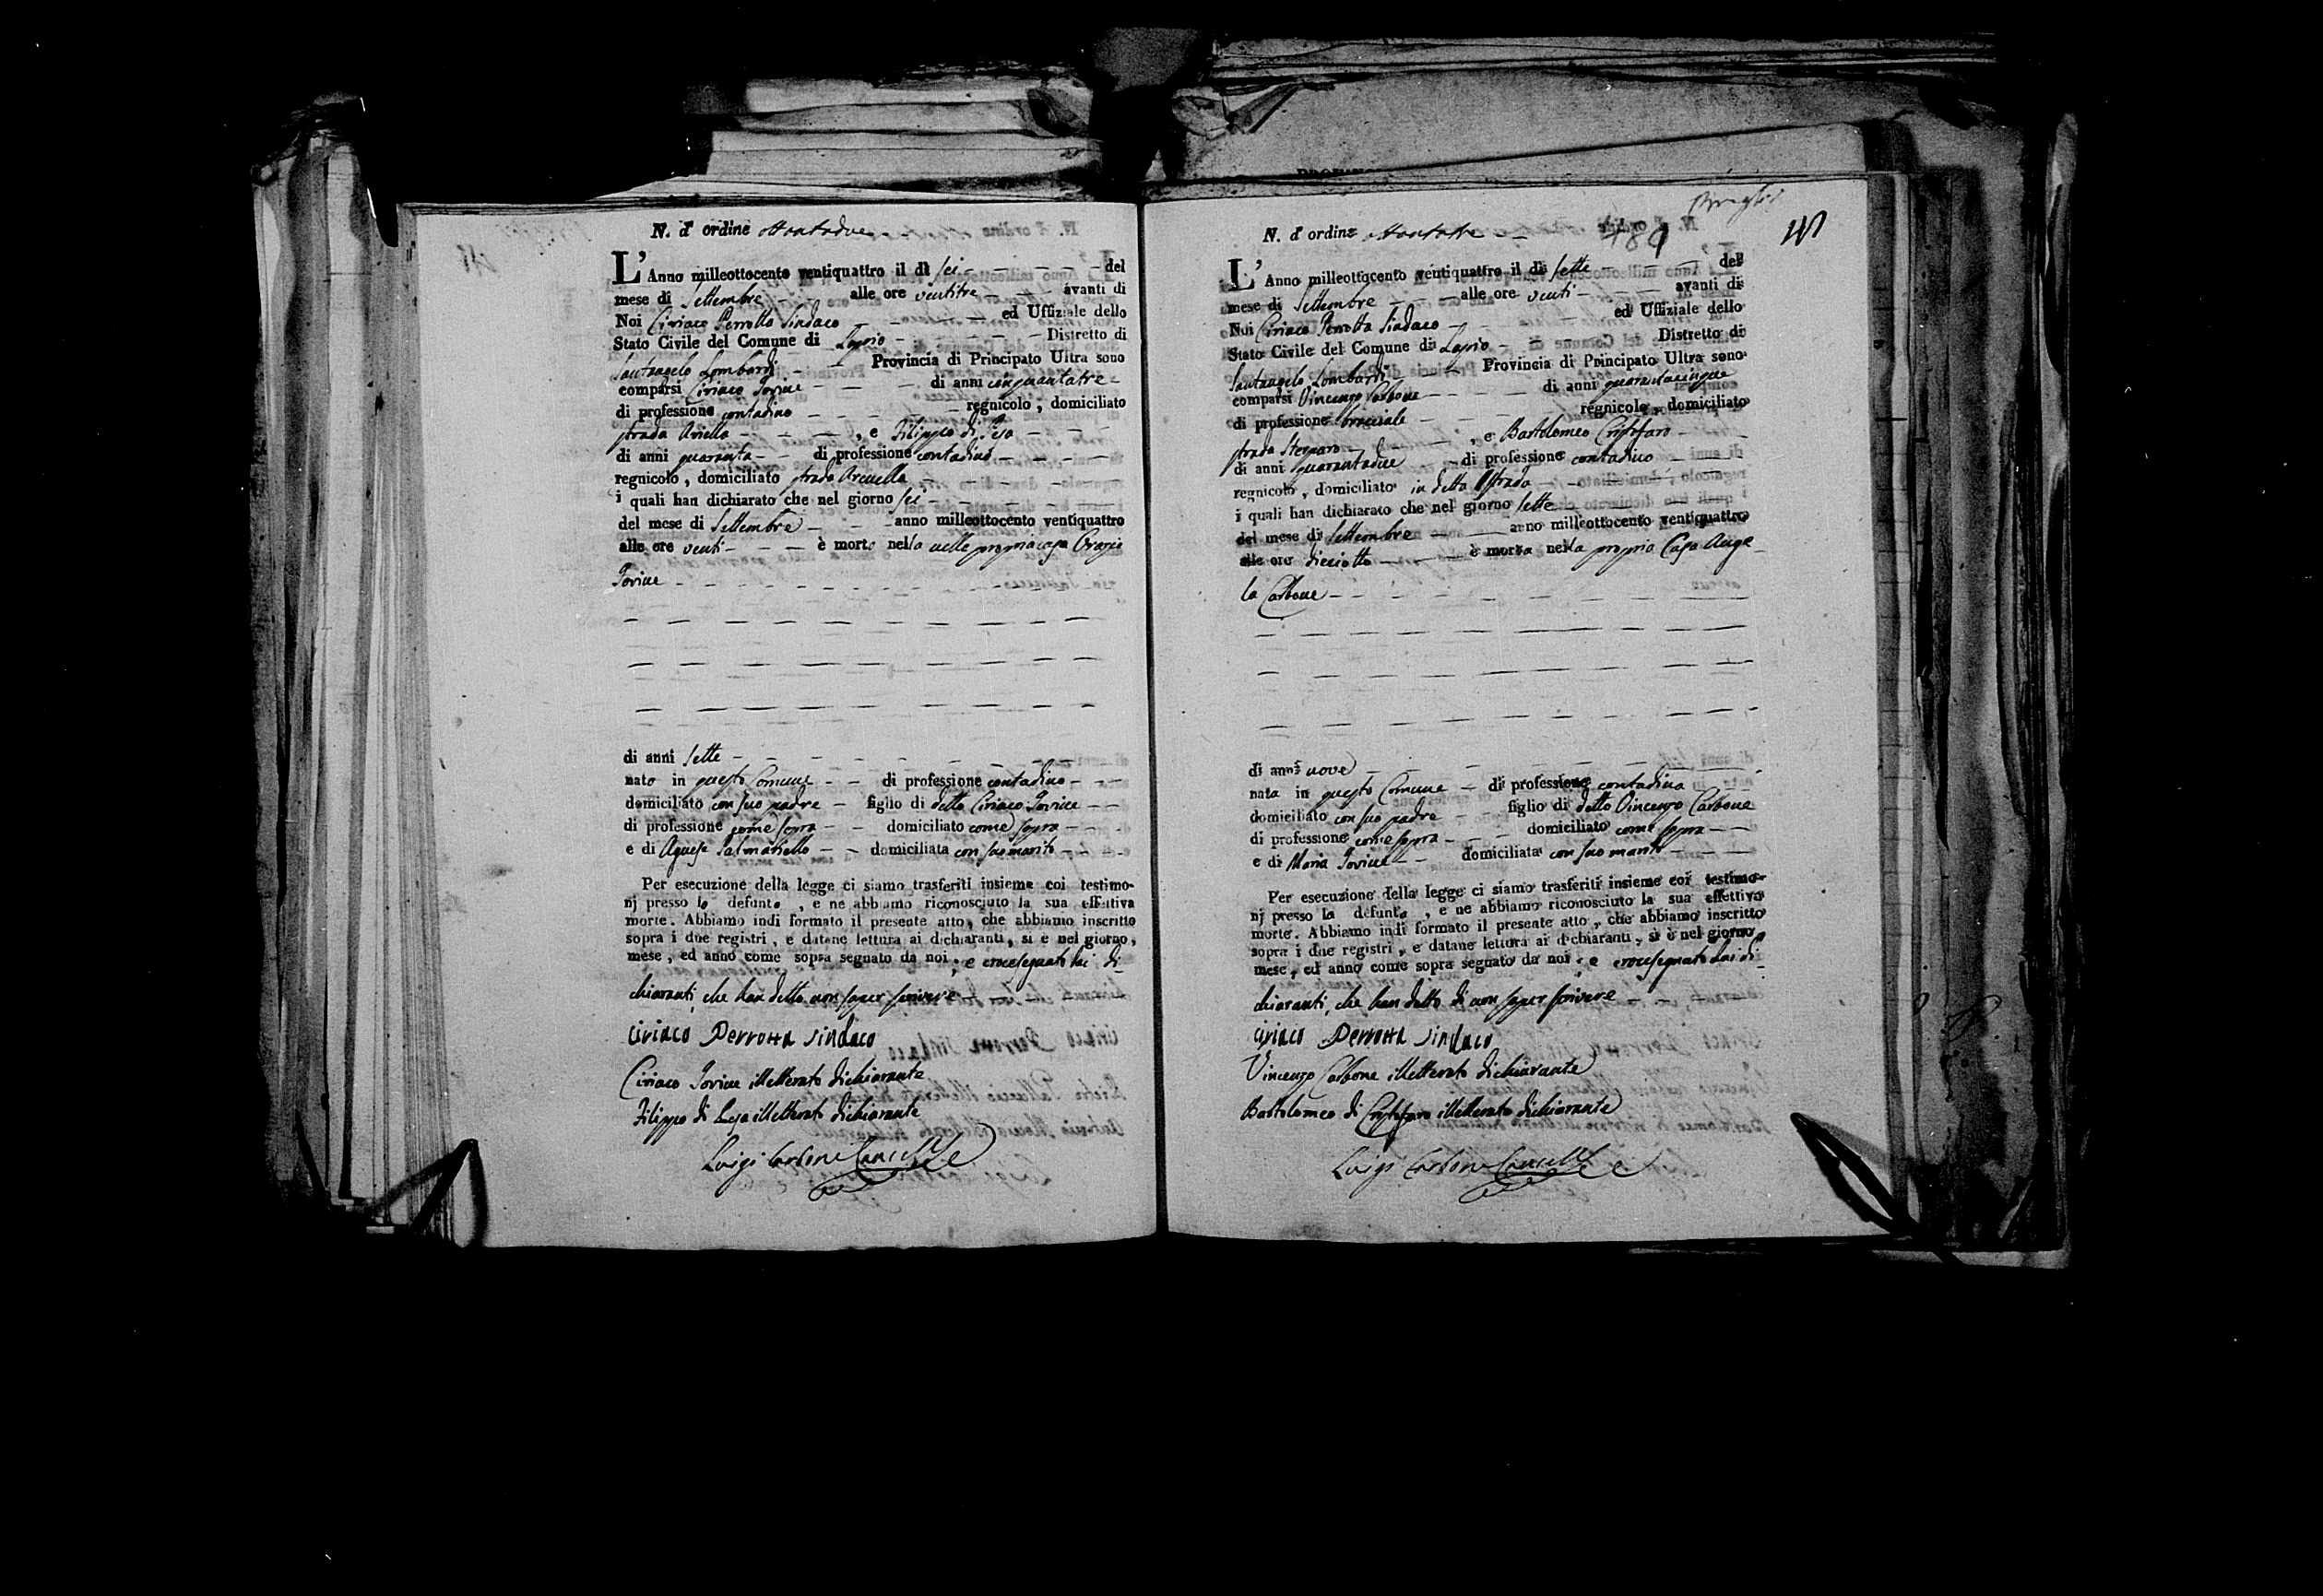 N. d' ordine ottantadue
L' Anno milleottocento ventiquattro il dì sei del
mese di Settembre alle ore ventitre avanti di
Noi Ciriaco Perrotta Sindaco ed Uffiziale dello
Stato Civile del Comune di Lapio Distretto di
Santangelo Lombardi Provincia di Principato Ultra sono
comparsi Ciriaco Iovine di anni cinquantatre
di professione contadino regnicolo, domiciliato
strada, e Filippo di
di anni quaranta di professione contadino
regnicolo, domiciliato strada
i quali han dichiarato che nel giorno sei
del mese di Settembre anno milleottocento ventiquattro
alle ore venti è morto nella nelle propria casa Orazio
Iovine
di anni sette
nato in questo Comune di professione contadino
domiciliato con suo padre figlio di detto Ciriaco Iovine
di professione come sopra domiciliato come sopra
e di Agnese domiciliata con suo marito
Per esecuzione della legge ci siamo trasferiti insieme coi testimo-
nj presso lo defunto, e ne abbiamo riconosciuto la sua effettiva
morte. Abbiamo indi formato il presente atto, che abbiamo inscritto
sopra i due registri, e datane lettura ai dichiaranti, si è nel giorno,
mese, ed anno come sopra segnato da noi, e crocesegnato dai di-
chiaranti, che han detto non saper scrivere
Ciriaco Perrotta Sindaco
Ciriaco Iovine illetterato dichiarante
Filippo di illetterato dichiarante
Luigi Carbone Cancelle
181
N. d' ordine ottantatre
L' Anno milleottocento ventiquattro il dì sette del
mese di Settembre alle ore venti avanti di
Noi Ciriaco Perrotta Sindaco ed Uffiziale dello
Stato Civile del Comune di Lapio Distretto di
Santangelo Lombardi Provincia di Principato Ultra sono
comparsi Vincenzo Carbone di anni quarantacinque
di professione bracciale regnicolo, domiciliato
strada, e Bartolomeo Cristofaro
di anni quarantadue di professione contadino
regnicolo, domiciliato in detta strada
i quali han dichiarato che nel giorno sette
del mese di Settembre anno milleottocento ventiquattro
alle ore diciotto è morta nella propria Casa Ange
la Carbone
di anni nove
nata in questo Comune di professione contadina
domiciliato con suo padre figlio di detto Vincenzo Carbone
di professione come sopra domiciliato come sopra
e di Maria Iovine domiciliata con suo marito
Per esecuzione della legge ci siamo trasferiti insieme coi testimo-
nj presso la defunta, e ne abbiamo riconosciuto la sua effettiva
morte. Abbiamo indi formato il presente atto, che abbiamo inscritto
sopra i due registri, e datane lettura ai dichiaranti, si è nel giorno,
mese, ed anno come sopra segnato da noi, e crocesegnato dai di-
chiaranti, che han detto di non saper scrivere
Ciriaco Perrotta Sindaco
Vincenzo Carbone illetterato dichiarante
Bartolomeo di Cristofaro illetterato dichiarante
Luigi Carbone Cancelle